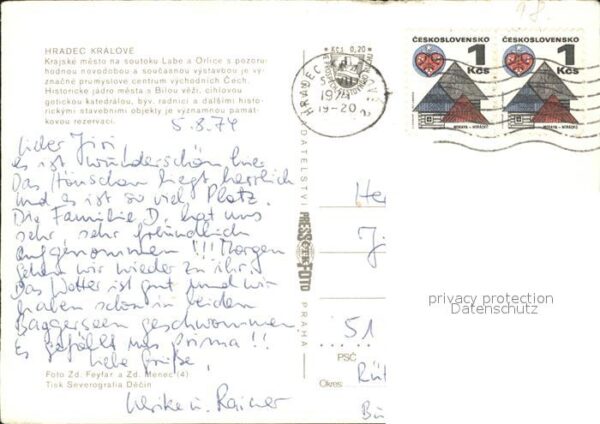 HRADEC KRÁLOVÉ
Krajské město na soutoku Labe a Orlice s pozoru-
hodnou novodobou a současnou výstavbou je vý-
značné průmyslové centrum východních Čech.
Historické jádro města s Bílou věží, cihlovou
gotickou katedrálou, býv. radnicí a dalšími histo-
rickými stavebními objekty je významnou památ-
kovou rezervací.
5.8.74
Lieber Jiri
es ist wunderschön hier
Das Häuschen liegt herrlich
und es ist so viel Platz.
Die Familie D. hat uns
sehr, sehr freundlich
aufgenommen!!! Morgen
gehen wir wieder zu ihr.
Das Wetter ist gut und wir
haben schon in beiden
Baggerseen geschwommen.
Es gefällt uns prima!!
Liebe Grüße,
Ulrike u. Rainer
Foto Zd. Feyfar a Zd. Menec (4)
Tisk Severografia Děčín
Kčs 0,20
VYDAVATELSTVÍ
PRESSFOTO
PRAHA
HRADEC KRÁLOVÉ
1974
19-20
ČESKOSLOVENSKO 1 Kčs
MORAVA - HORÁCKO
ČESKOSLOVENSKO 1 Kčs
MORAVA - HORÁCKO
He
51
PSČ
Okres:
privacy protection
Datenschutz